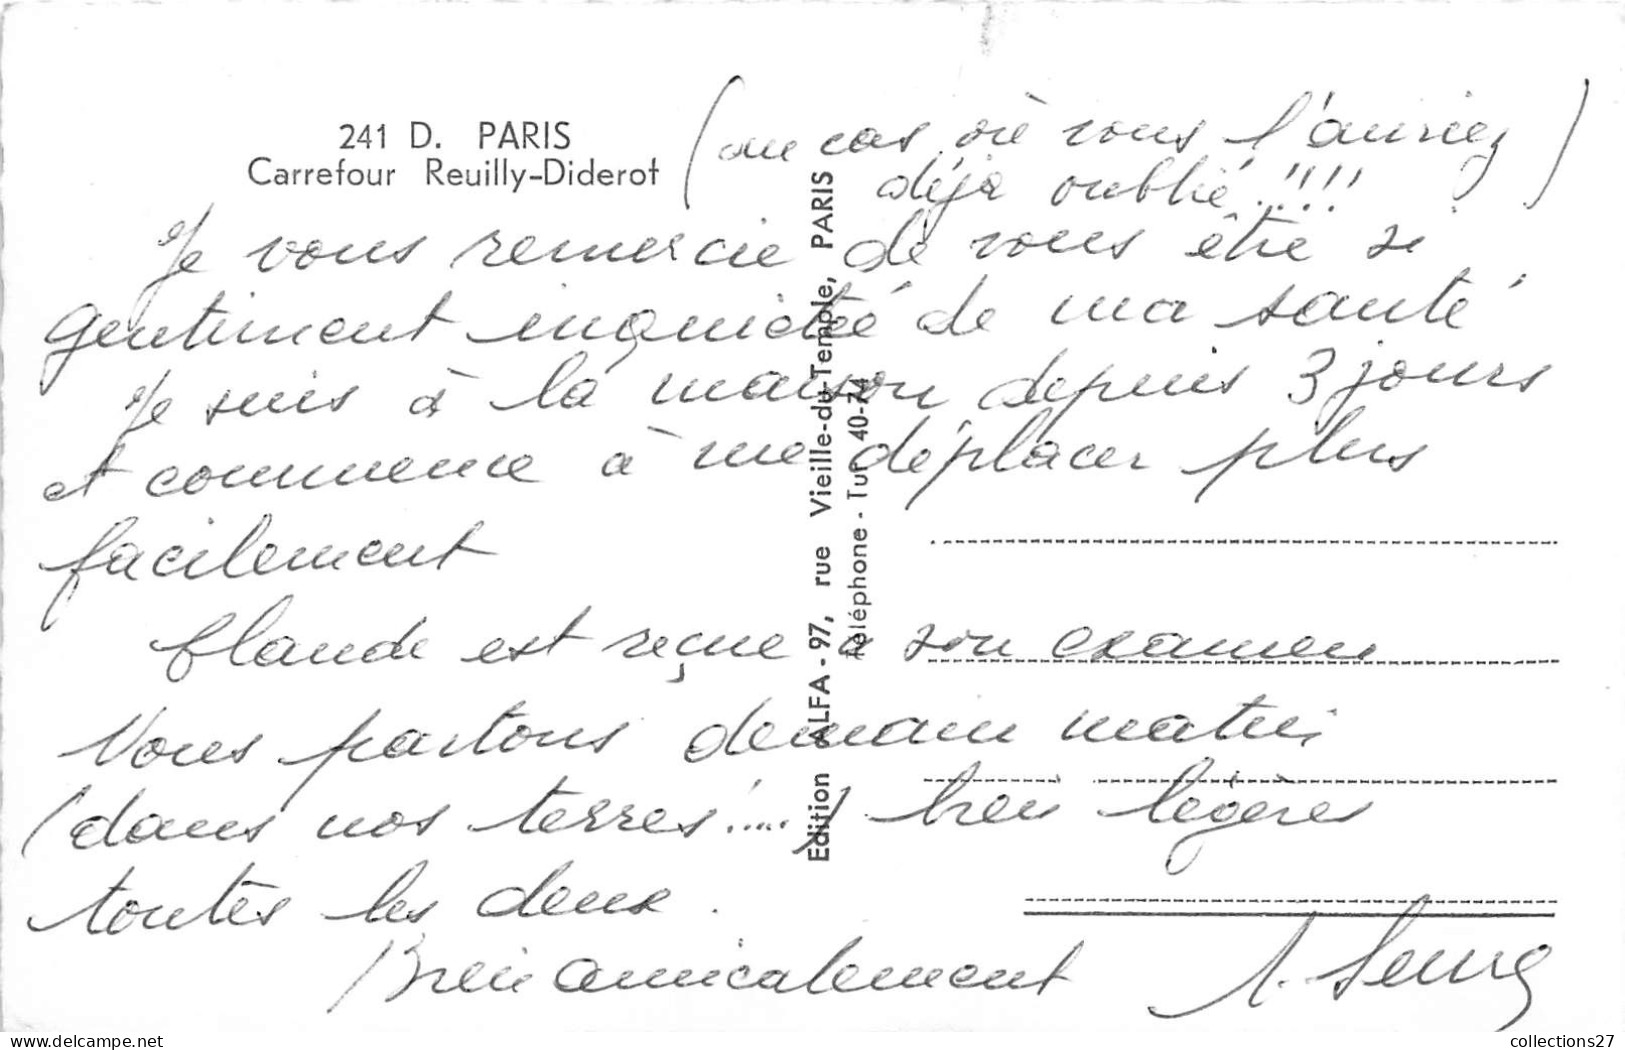 241 D. PARIS
Carrefour Reuilly-Diderot
(au cas où vous l'auriez
déjà oublié!!!!)
Je vous remercie de vous être si
gentiment inquiétée de ma santé
Je suis à la maison depuis 3 jours
et commence à me déplacer plus
facilement
Claude est reçue à son examen
Nous partons demain matin
(dans nos terres!....) bien légères
toutes les deux.
Bien amicalement
Edition ALFA - 97, rue Vieille-du-Temple, PARIS
Téléphone - Tur 40-74
delcampe.net
collections27